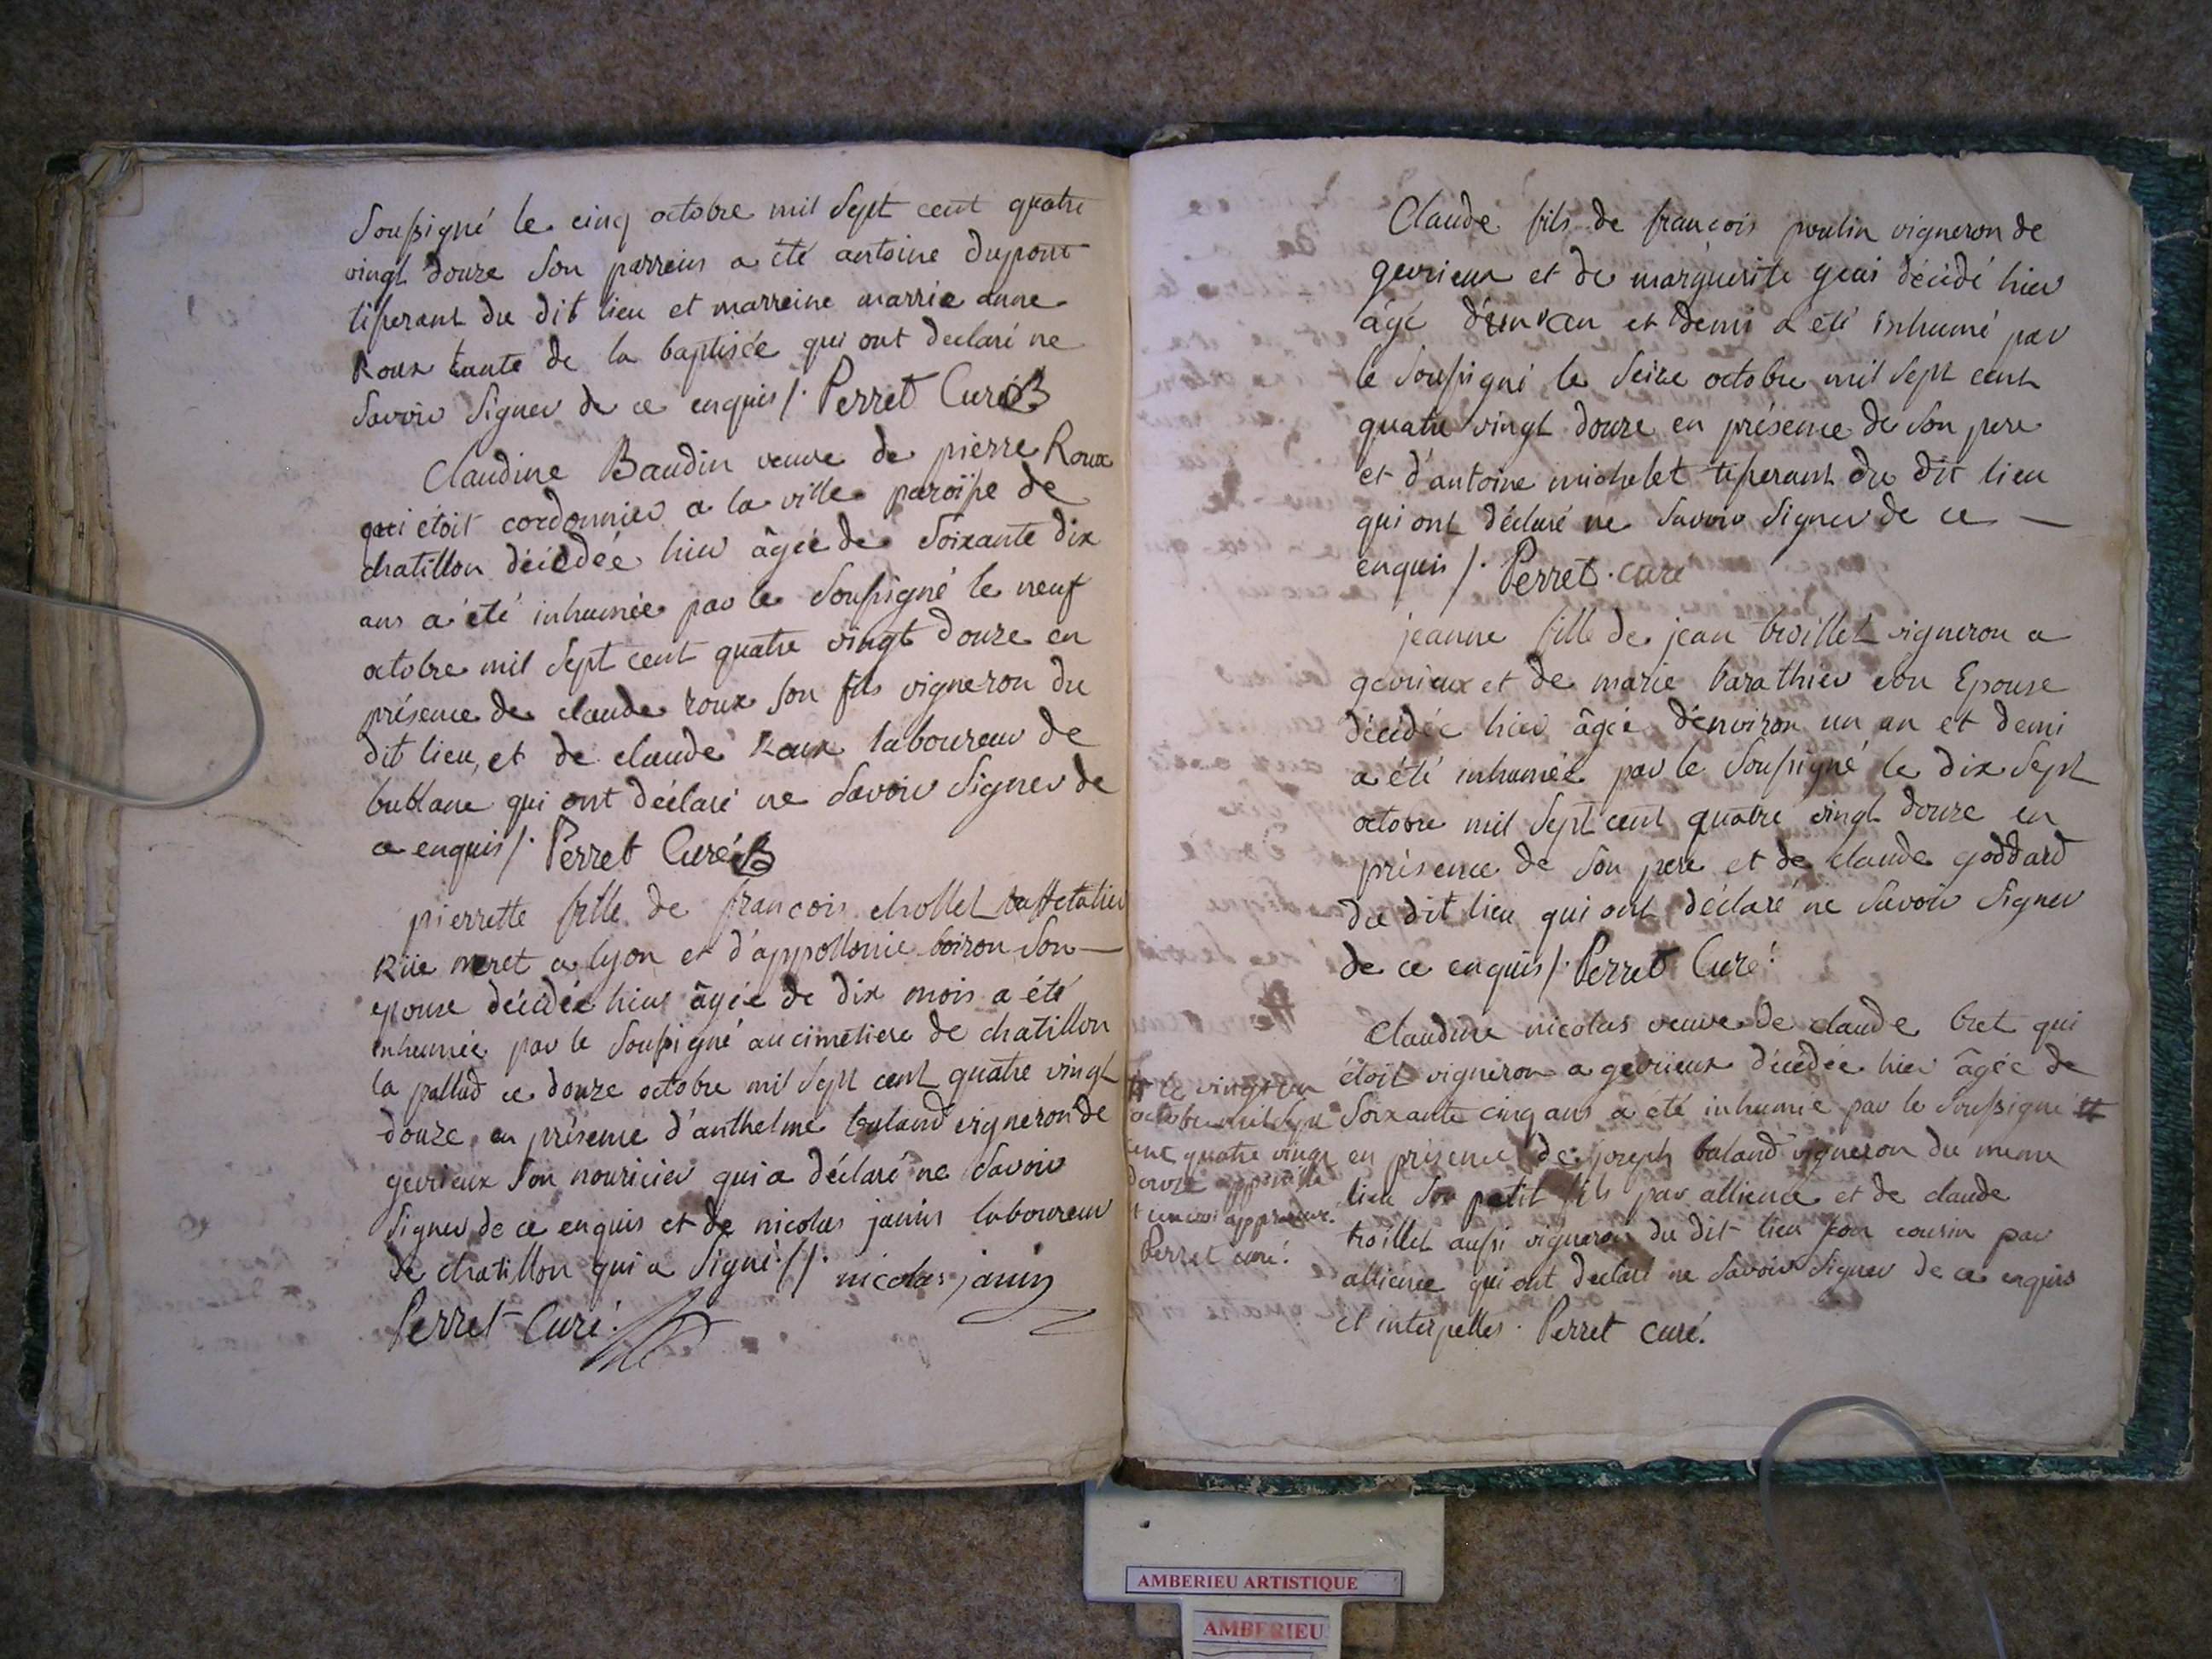 soussigné le cinq octobre mil sept cent quatre
vingt douze son parrein a été antoine dupont
tisserant du dit lieu et marreine marrie anne
Roux tante de la baptisée qui ont declaré ne
savoir signer de ce enquis /. Perret Curé
Claudine Baudin veuve de pierre Roux
qui étoit cordonnier a la ville paroisse de
chatillon décédée hier âgée de soixante dix
ans a été inhumée par le soussigné le neuf
octobre mil sept cent quatre vingt douze en
présence de claude roux son fils vigneron du
dit lieu, et de claude Roux laboureur de
bublane qui ont déclaré ne savoir signer de
ce enquis /. Perret Curé
pierrette fille de françois chollet taffetatier
Rüe meret a lyon et d'appollonie boiron son
epouse décédée hier âgée de dix mois a été
inhumée par le soussigné au cimetiere de chatillon
la pallud ce douze octobre mil sept cent quatre vingt
douze, en présence d'anthelme baland vigneron de
gevrieux son nouricier qui a déclaré ne savoir
signer de ce enquis et de nicolas janin laboureur
de chatillon qui a signé. //. nicolas janin
Perret Curé.
Claude fils de françois poulin vigneron de
gevrieux et de marguerite décédé hier
âgé d'un an et demi a été inhumé par
le soussigné le seize octobre mil sept cent
quatre vingt douze en présence de son pere
et d'antoine michelet tisserant du dit lieu
qui ont déclaré ne savoir signer de ce
enquis /. Perret. curé
jeanne fille de jean troillet vigneron a
gevrieux et de marie barathier son Epouse
décédée hier âgée d'environ un an et demi
a été inhumée par le soussigné le dix sept
octobre mil sept cent quatre vingt douze en
présence de son pere et de claude goddard
du dit lieu qui ont déclaré ne savoir signer
de ce enquis /. Perret Curé.
Claudine nicolas veuve de claude bret qui
étoit vigneron a gevrieux décédée hier âgée de
soixante cinq ans a été inhumée par le soussigné #
en présence de joseph baland vigneron du meme
lieu son petit fils par allience et de claude
troillet aussi vigneron du dit lieu son cousin par
allience qui ont declaré ne savoir signer de ce enquis
et interpellés. Perret curé.
# le vingt un
octobre mil sept
cent quatre vingt
douze
Perret curé.
AMBERIEU ARTISTIQUE
AMBERIEU